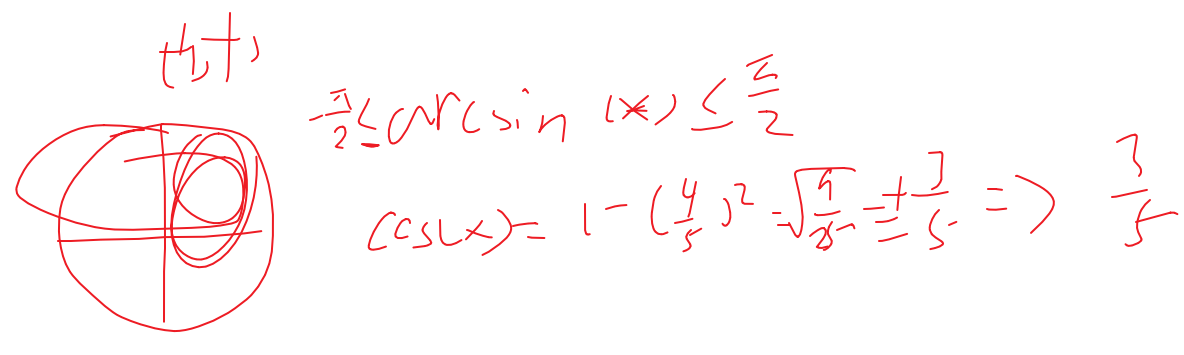 (+,+)
-π/2 ≤ arcsin (x) ≤ π/2
cos(x) = 1 - (4/5)² = √9/25 = ± 3/5 => 3/5